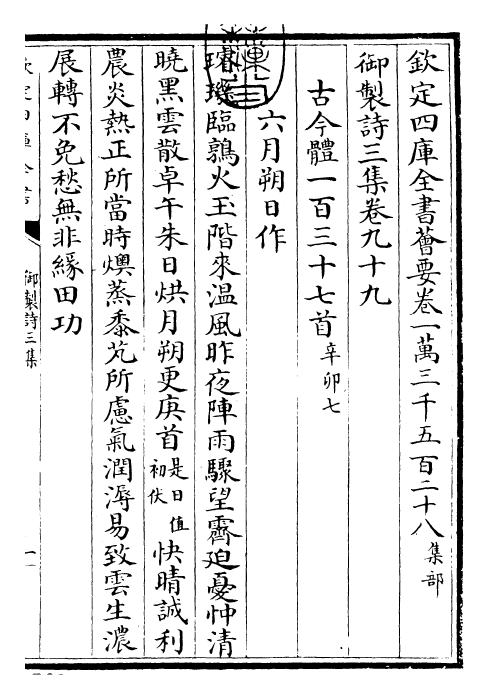 欽定四庫全書薈要卷一萬三千五百二十八集部
御製詩三集卷九十九
古今體一百三十七首辛卯七
六月朔日作
璿璣臨鶉火玉階來温風昨夜陣雨驟望霽廹憂忡清
曉黑雲散卓午朱日烘月朔更庚首是日值初伏快晴誠利
農炎熱正所當時燠蒸黍芃所慮氣潤溽易致雲生濃
展轉不免愁無非緣田功
欽定四庫全書
御製詩三集
一